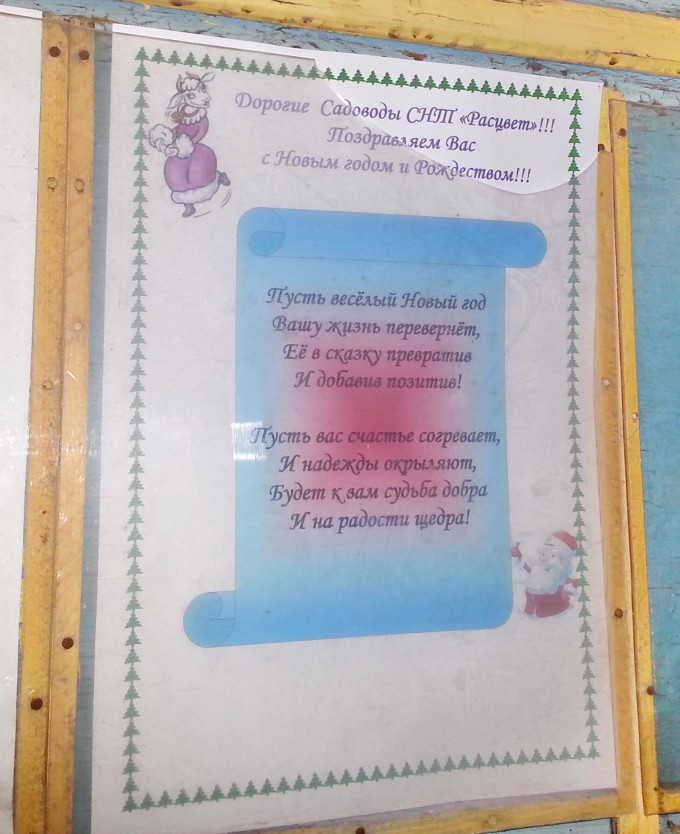 Дорогие Садоводы СНТ «Расцвет»!!!
Поздравляем Вас
с Новым годом и Рождеством!!!
Пусть весёлый Новый год
Вашу жизнь перевернёт,
Её в сказку превратив
И добавив позитив!
Пусть вас счастье согревает,
И надежды окрыляют,
Будет к вам судьба добра
И на радости щедра!